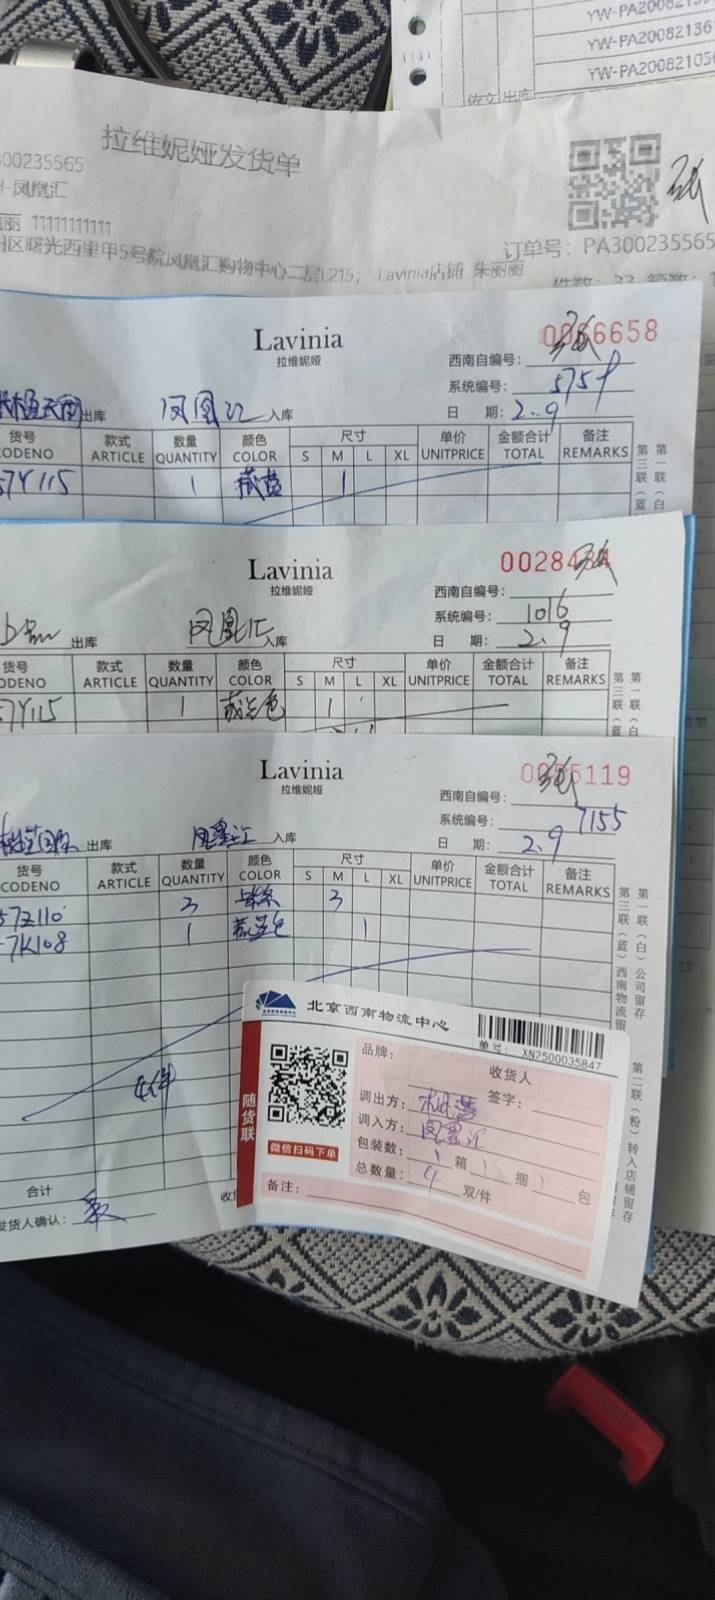 YW-PA20082136
YW-PA20082105
依文出库
拉维妮娅发货单
300235565
凤凰汇
丽 11111111111
区曙光西里甲5号院凤凰汇购物中心二层L215, Lavinia店铺 朱丽丽
订单号: PA300235565
件数: 33
Lavinia
拉维妮娅
6658
西南自编号:
系统编号: 5759
出库 凤凰汇 入库
日 期: 2.9
货号 款式 数量 颜色 尺寸 单价 金额合计 备注
CODENO ARTICLE QUANTITY COLOR S M L XL UNITPRICE TOTAL REMARKS
57Y115 1 藏蓝 1
第三联(蓝
第一联(白
Lavinia
拉维妮娅
00284
西南自编号:
系统编号: 1016
出库 凤凰汇 入库
日 期: 2.9
货号 款式 数量 颜色 尺寸 单价 金额合计 备注
ODENO ARTICLE QUANTITY COLOR S M L XL UNITPRICE TOTAL REMARKS
57Y115 1 藏兰色 1
第三联(蓝
第一联(白
Lavinia
拉维妮娅
5119
西南自编号:
系统编号: 7155
出库 凤凰汇 入库
日 期: 2.9
货号 款式 数量 颜色 尺寸 单价 金额合计 备注
CODENO ARTICLE QUANTITY COLOR S M L XL UNITPRICE TOTAL REMARKS
57Z110 3 3
7K108 1 藏蓝色 1
4件
合计
发货人确认:
第一联(白)公司留存
第三联(蓝)西南物流留
第二联(粉)转入店铺留存
北京西南物流中心
单号: XN2500035847
随货联
微信扫码下单
品牌:
收货人
签字:
调出方:
调入方: 凤凰汇
包装数: 1 箱 1 捆 1 包
总数量: 4 双/件
备注: